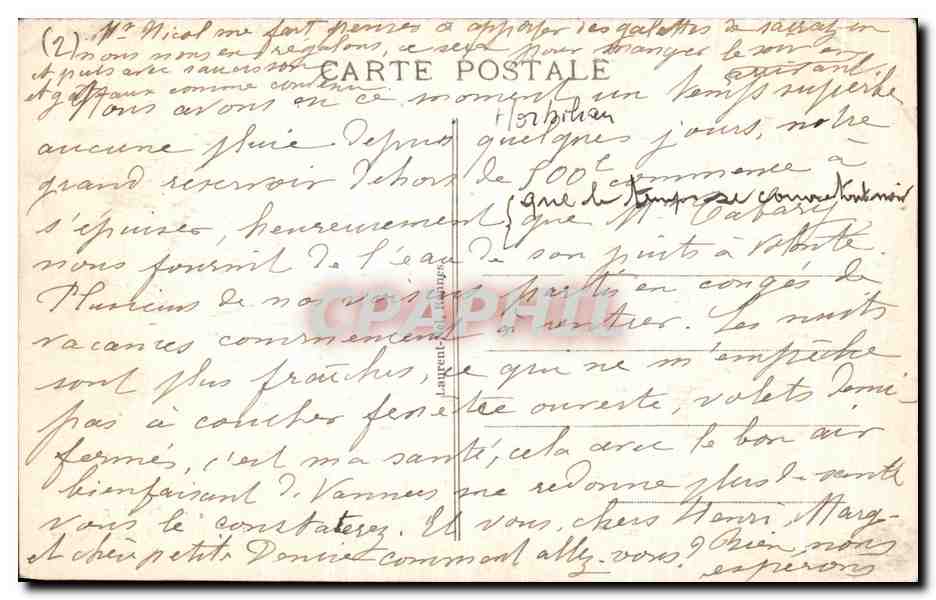 (2) Me Nicol me fait penser à apporter des galettes de sarrazin
nous nous en régalons, ce sera pour manger le soir en
et puis avec saucisson arrivant.
et gâteaux comme convenu.
CARTE POSTALE
Nous avons en ce moment un temps superbe
Morbihan
aucune pluie depuis quelques jours, notre
grand reservoir dehors de 500l commence à
que le temps se couvre tout noir
s'épuiser, heureusement que Mr Tabary
nous fournit de l'eau de son puits à volonté.
Plusieurs de nos voisins partis en congés de
vacances commencent à rentrer. Les nuits
sont plus fraîches, ce qui ne m'empêche
pas à coucher fenêtre ouverte, volets demi-
fermés, c'est ma santé, cela avec le bon air
bienfaisant de Vannes me redonne plus de santé
vous le constaterez. Et vous, chers Henri, Marg-
et chère petite Denise comment allez-vous? Bien, nous
espérons
Laurent-Nel, Rennes
CPAPHIL